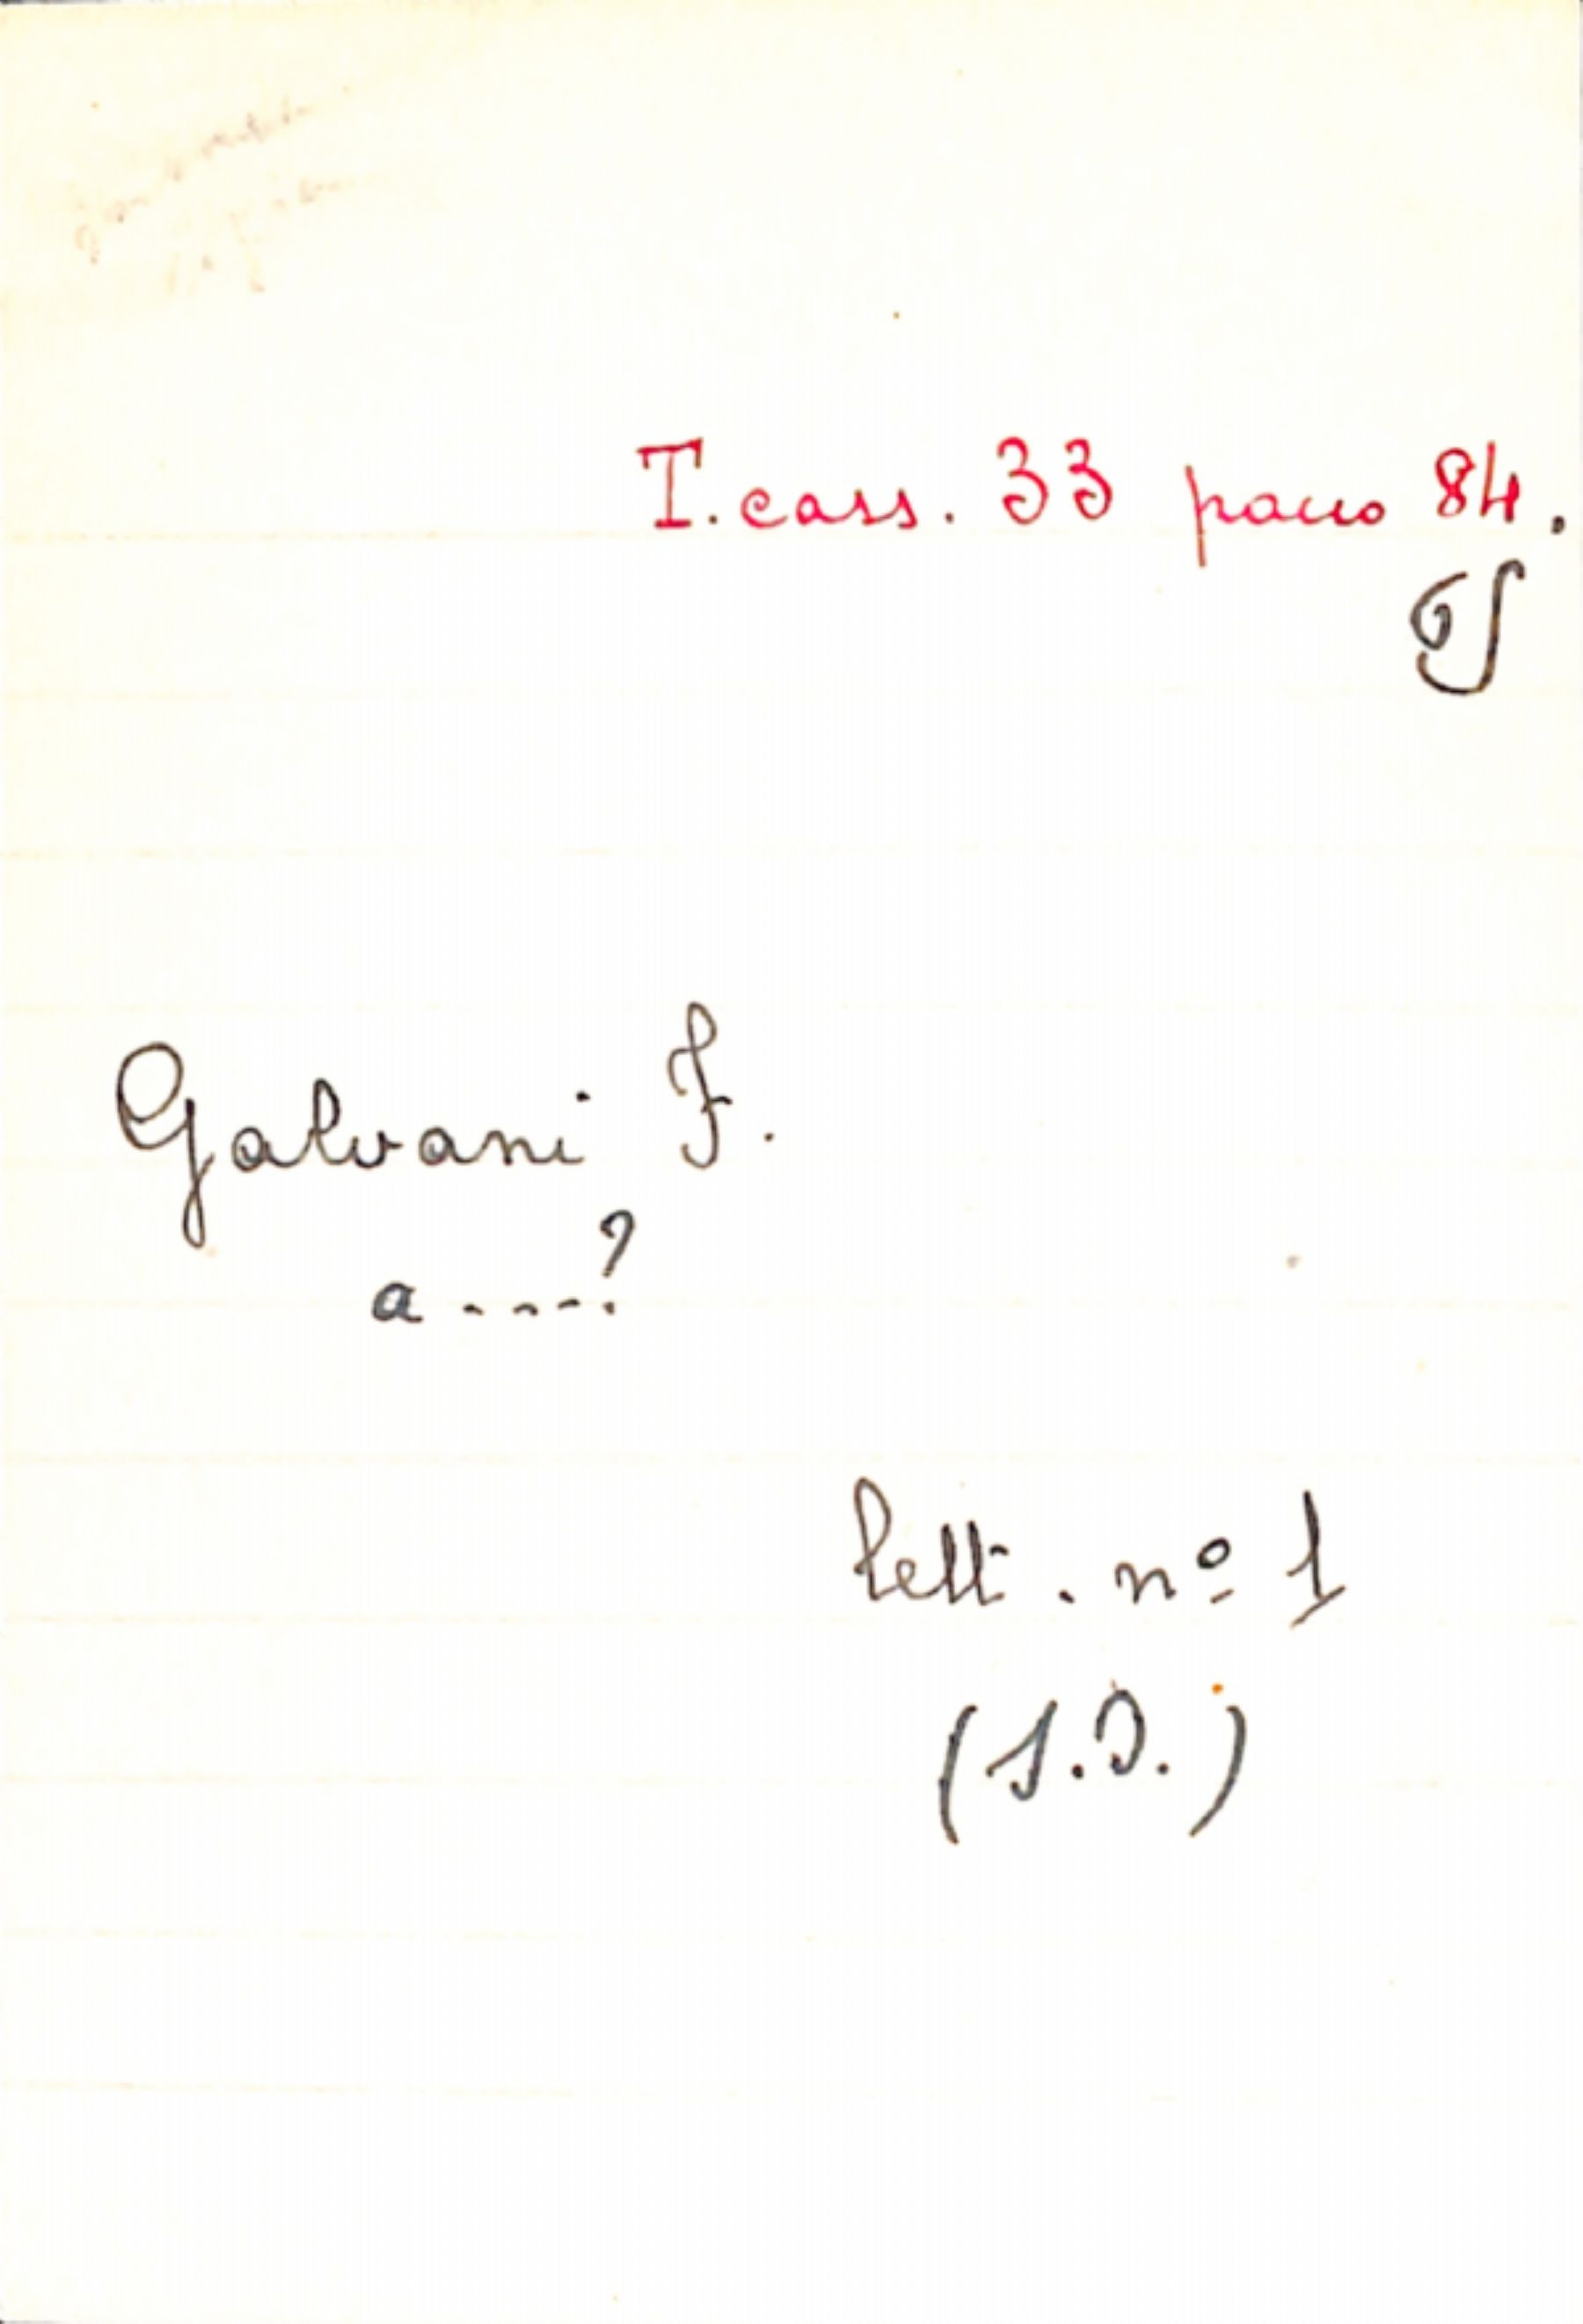 T. cass. 33 pacco 84.
Galvani F.
a ----?
lett. nº 1
(S.D.)